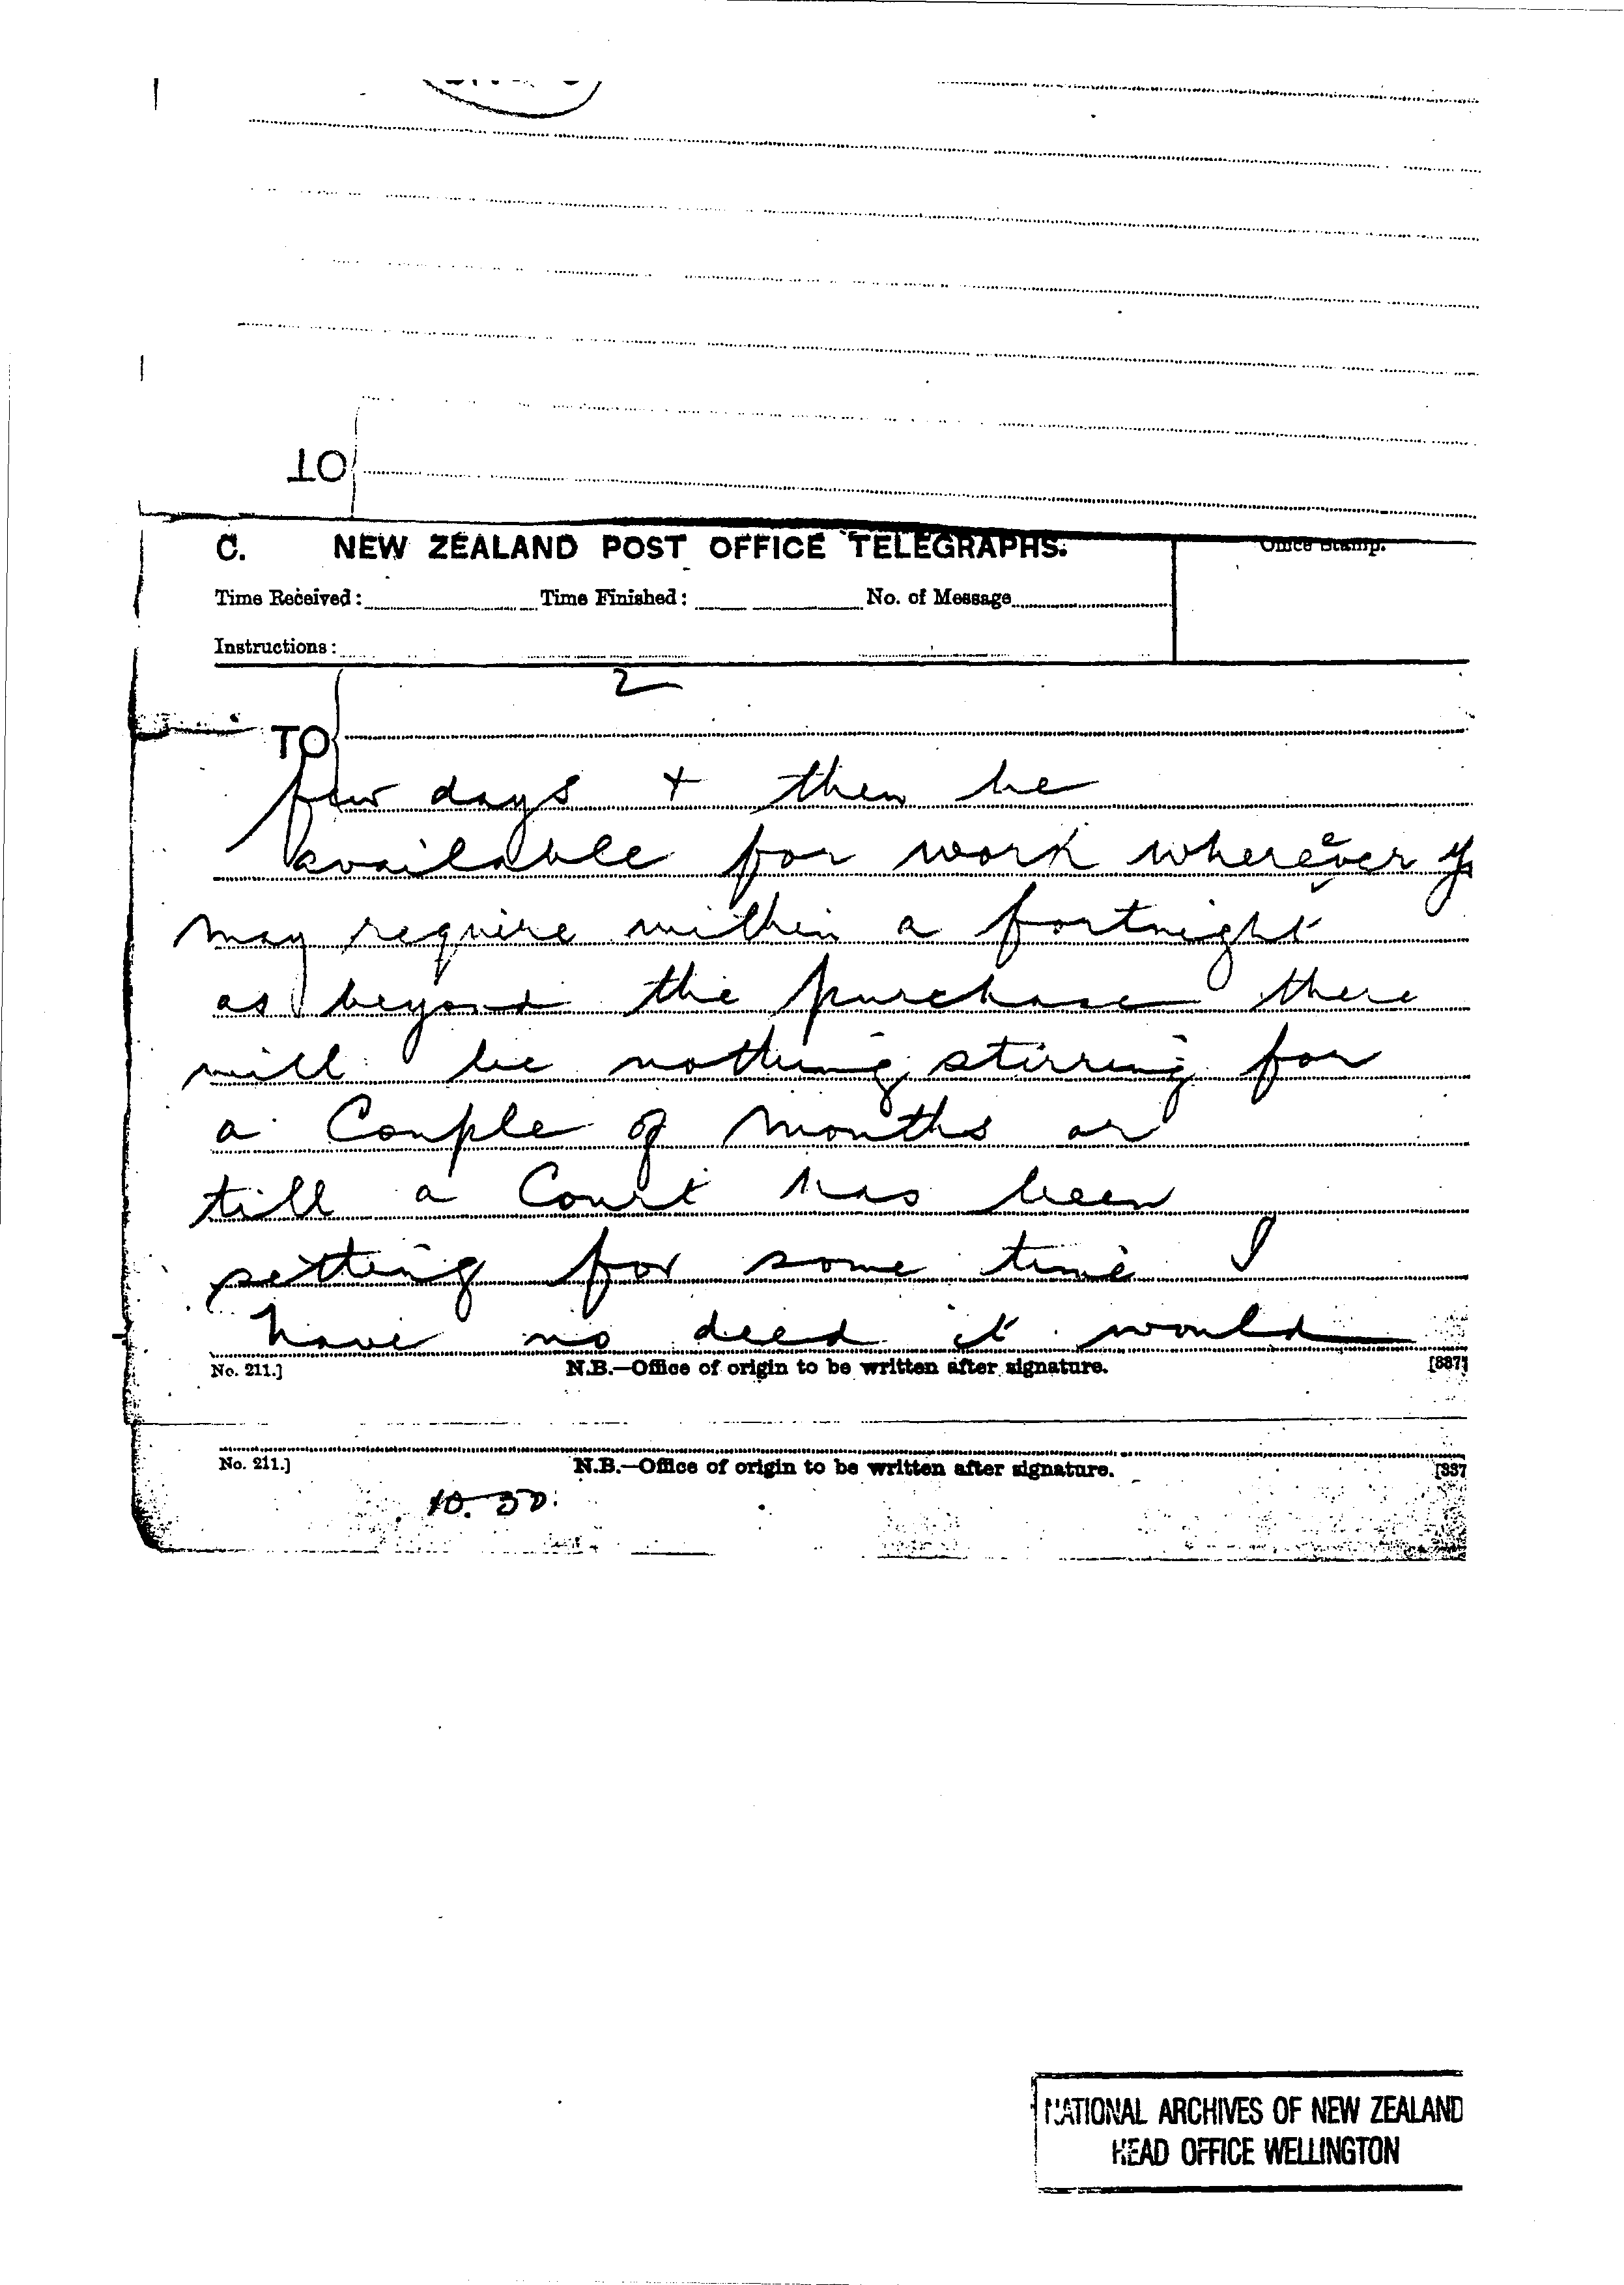 TO
C. NEW ZEALAND POST OFFICE TELEGRAPHS.
Office Stamp.
Time Received: Time Finished: No. of Message
Instructions:
2
TO
few days + then be
available for work wherever y
may require within a fortnight
as beyond the purchase there
will be nothing stirring for
a Couple of months or
till a Court has been
setting for some time I
have no deed it would
No. 211.] N.B.—Office of origin to be written after signature. [337]
No. 211.] N.B.—Office of origin to be written after signature. [337
10.30
NATIONAL ARCHIVES OF NEW ZEALAND
HEAD OFFICE WELLINGTON